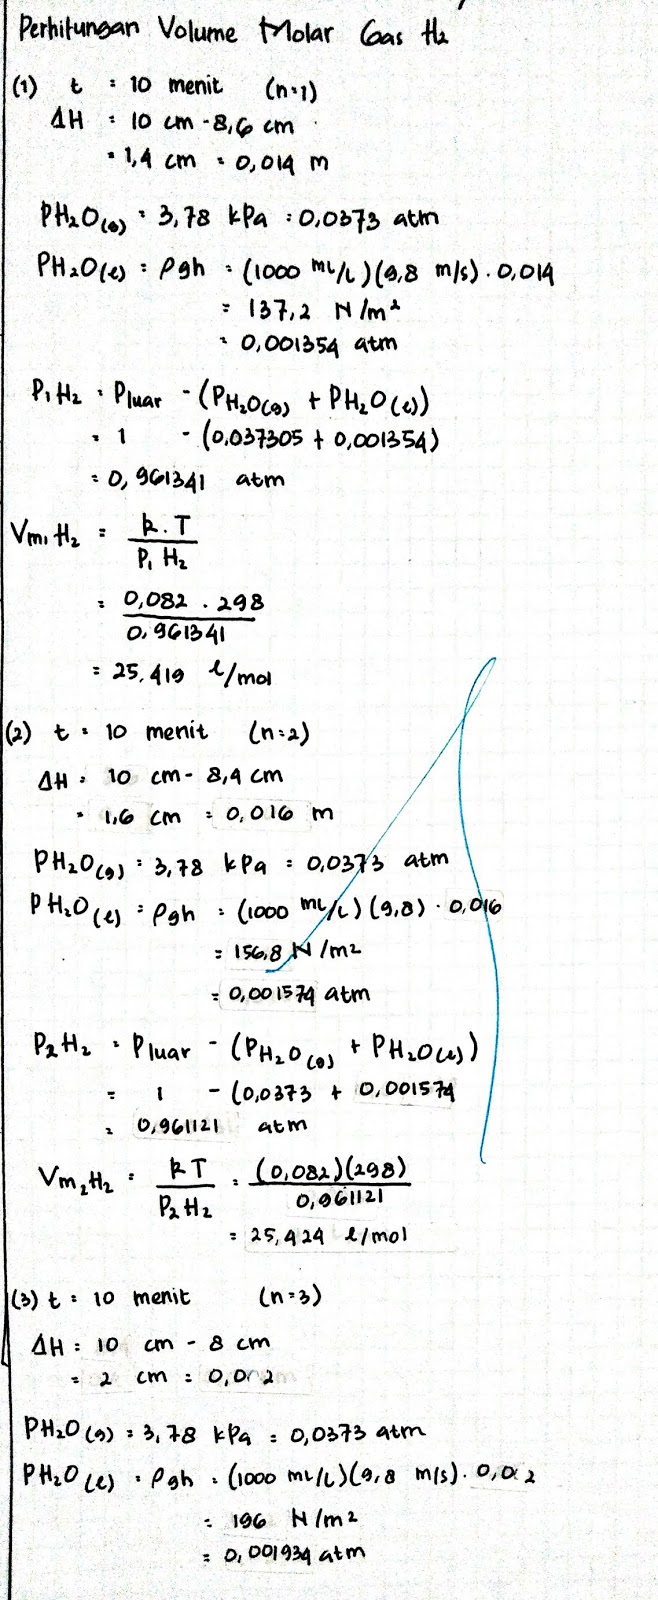 Perhitungan Volume Molar Gas H₂
(1) t = 10 menit (n=1)
ΔH = 10 cm - 8,6 cm
= 1,4 cm = 0,014 m
PH₂O(g) = 3,78 kPa = 0,0373 atm
PH₂O(l) = ρgh = (1000 mL/L)(9,8 m/s) . 0,014
= 137,2 N/m²
= 0,001354 atm
P₁H₂ = Pluar - (PH₂O(g) + PH₂O(l))
= 1 - (0,037305 + 0,001354)
= 0,961341 atm
Vm₁H₂ = R.T / P₁H₂
= 0,082 . 298 / 0,961341
= 25,419 l/mol
(2) t = 10 menit (n=2)
ΔH = 10 cm - 8,4 cm
= 1,6 cm = 0,016 m
PH₂O(g) = 3,78 kPa = 0,0373 atm
PH₂O(l) = ρgh = (1000 mL/L)(9,8) . 0,016
= 156,8 N/m²
= 0,001574 atm
P₂H₂ = Pluar - (PH₂O(g) + PH₂O(l))
= 1 - (0,0373 + 0,001574
= 0,961121 atm
Vm₂H₂ = RT / P₂H₂ = (0,082)(298) / 0,961121
= 25,424 l/mol
(3) t = 10 menit (n=3)
ΔH = 10 cm - 8 cm
= 2 cm = 0,02
PH₂O(g) = 3,78 kPa = 0,0373 atm
PH₂O(l) = ρgh = (1000 mL/L)(9,8 m/s) . 0,02
= 196 N/m²
= 0,001934 atm